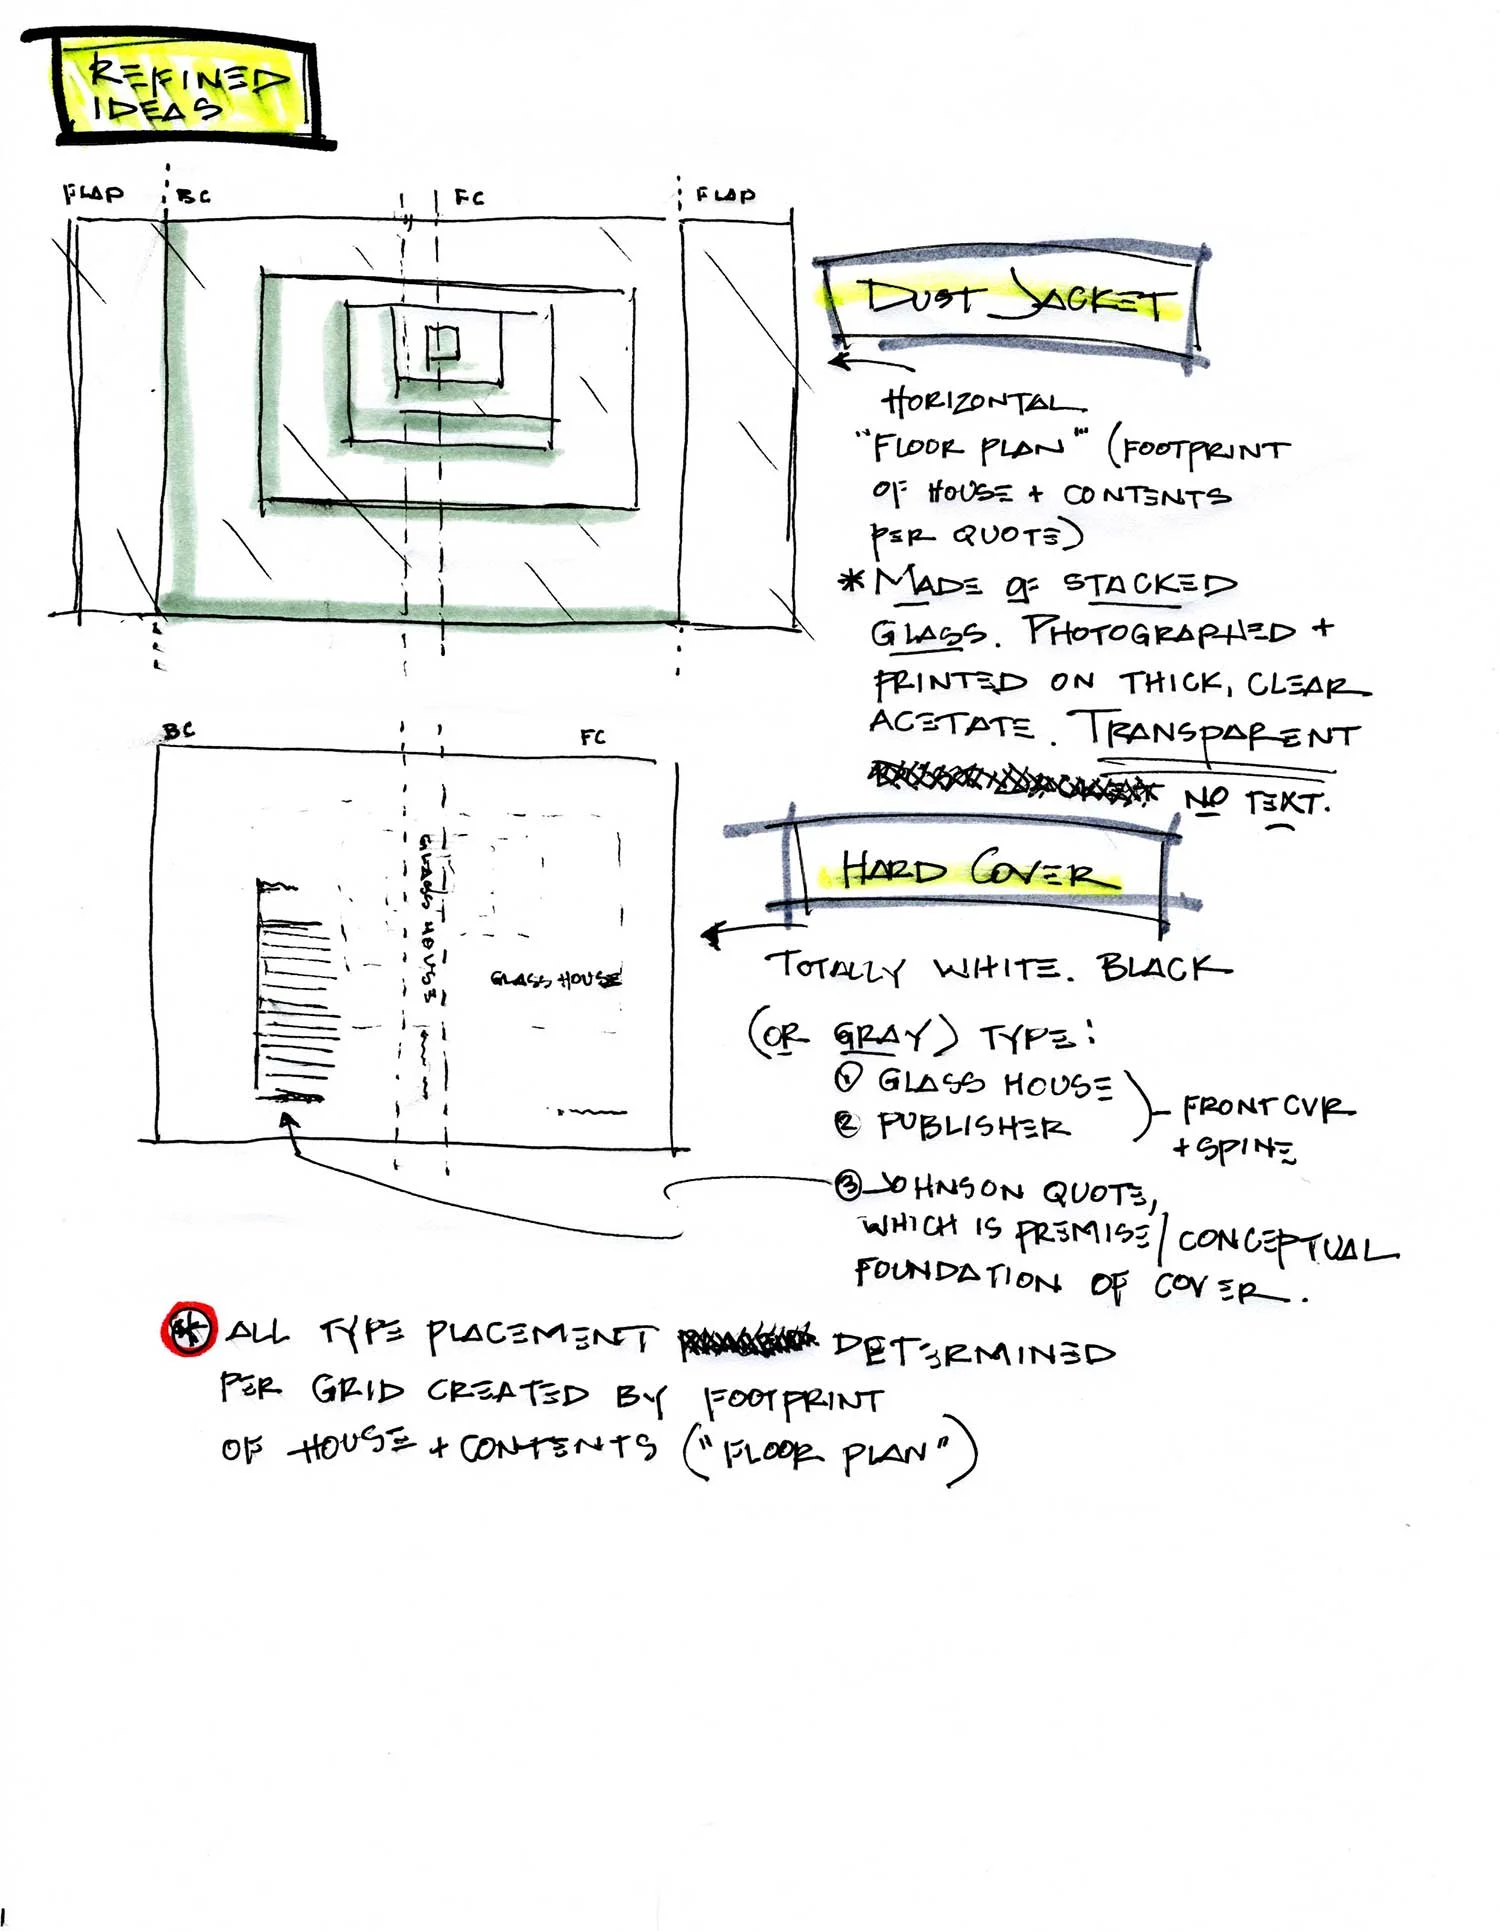 REFINED
IDEAS
FLAP BC FC FLAP
DUST JACKET
HORIZONTAL
"FLOOR PLAN" (FOOTPRINT
OF HOUSE + CONTENTS
PER QUOTE)
* MADE OF STACKED
GLASS. PHOTOGRAPHED +
PRINTED ON THICK, CLEAR
ACETATE. TRANSPARENT
NO TEXT.
BC FC
GLASS HOUSE
GLASS HOUSE
HARD COVER
TOTALLY WHITE. BLACK
(OR GRAY) TYPE:
① GLASS HOUSE
② PUBLISHER
FRONT CVR
+ SPINE
③ JOHNSON QUOTE,
WHICH IS PREMISE/CONCEPTUAL
FOUNDATION OF COVER.
* ALL TYPE PLACEMENT DETERMINED
PER GRID CREATED BY FOOTPRINT
OF HOUSE + CONTENTS ("FLOOR PLAN")